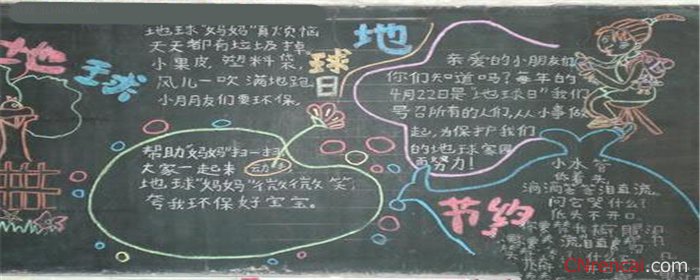 地球
地球"妈妈"真烦恼
天天都有垃圾掉,
小果皮,塑料袋,
风儿一吹满地跑
小朋友们要环保,
帮助"妈妈"扫一扫
大家一起来 动
地球"妈妈"微微笑,
夸我环保好宝宝。
地
球
日
亲爱的小朋友们
你们知道吗?每年的
4月22日是"地球日"我们
号召所有的人们,从小事做
起,为保护我们
的地球家园
而努力!
节约
小水
低着头
泪直流,
问它哭什么?
低头不开口,
Chinancai.com